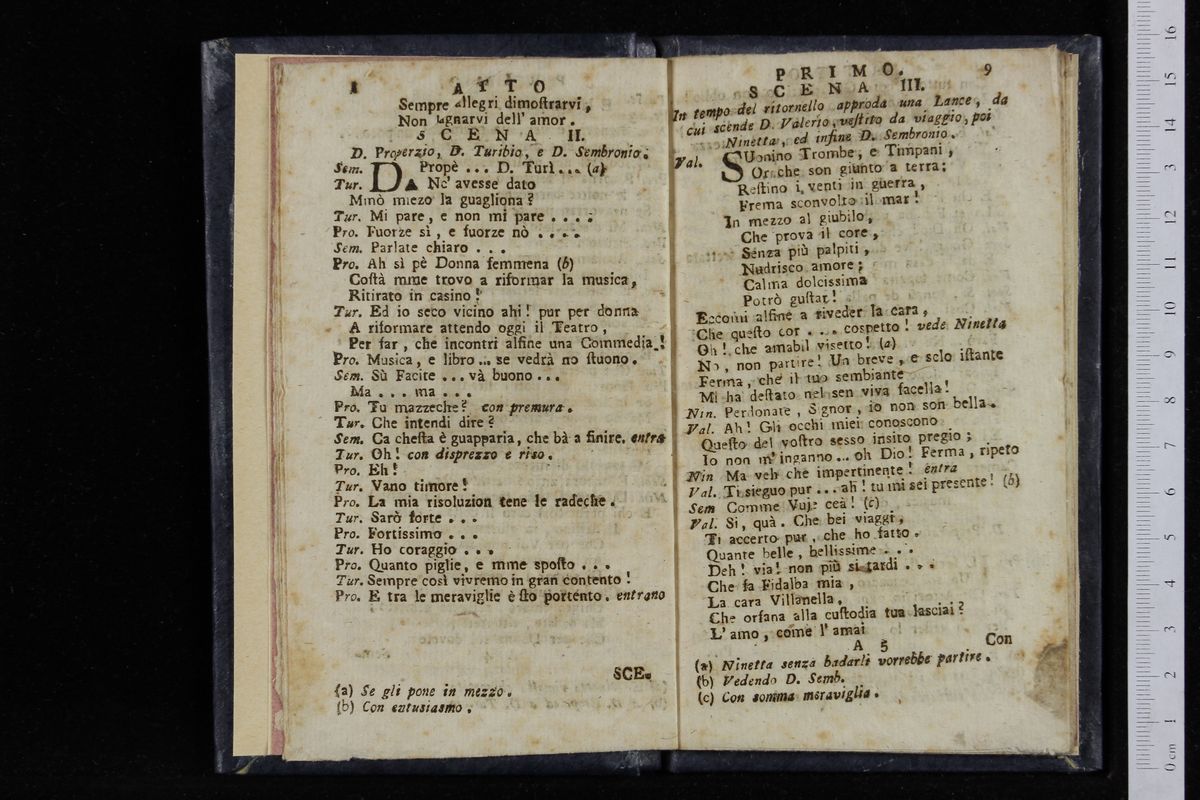 8 ATTO
Sempre allegri dimoſtrarvi,
Non lagnarvi dell' amor.
SCENA II.
D. Properzio, D. Turibio, e D. Sembronio.
Sem. DPropè ... D. Turì... (a)
Tur. A Nc' avesse dato
Minò miezo la guagliona?
Tur. Mi pare, e non mi pare ....
Pro. Fuorze sì, e fuorze nò ....
Sem. Parlate chiaro ...
Pro. Ah sì pè Donna femmena (b)
Coſtà mme trovo a riformar la musica,
Ritirato in casino!
Tur. Ed io seco vicino ahi! pur per donna
A riformare attendo oggi il Teatro,
Per far, che incontri alfine una Commedia.!
Pro. Musica, e libro... se vedrà no ſtuono.
Sem. Sù Facite ... và buono ...
Ma ... ma ...
Pro. Tu mazzeche? con premura.
Tur. Che intendi dire?
Sem. Ca cheſta è guapparia, che bà a finire. entra
Tur. Oh! con disprezzo e riso.
Pro. Eh!
Tur. Vano timore!
Pro. La mia risoluzion tene le radeche.
Tur. Sarò forte ...
Pro. Fortissimo ...
Tur. Ho coraggio ...
Pro. Quanto piglie, e mme spoſto ...
Tur. Sempre così vivremo in gran contento!
Pro. E tra le meraviglie è ſto portento. entrano
SCE.
(a) Se gli pone in mezzo.
(b) Con entusiasmo.
PRIMO. 9
SCENA III.
In tempo del ritornello approda una Lance, da
cui scende D. Valerio, veſtito da viaggio, poi
Ninetta, ed infine D. Sembronio.
Val. SUonino Trombe, e Timpani,
Or che son giunto a terra;
Reſtino i venti in guerra,
Frema sconvolto il mar!
In mezzo al giubilo,
Che prova il core,
Senza più palpiti,
Nudrisco amore;
Calma dolcissima
Potrò guſtar!
Eccomi alfine a riveder la cara,
Che queſto cor ... cospetto! vede Ninetta
Oh! che amabil visetto! (a)
No, non partire! Un breve, e solo iſtante
Ferma, chè il tuo sembiante
Mi ha deſtato nel sen viva facella!
Nin. Perdonate, Signor, io non son bella.
Val. Ah! Gli occhi miei conoscono
Queſto del voſtro sesso insito pregio;
Io non m' inganno... oh Dio! Ferma, ripeto
Nin Ma veh che impertinente! entra
Val. Ti sieguo pur ... ah! tu mi sei presente! (b)
Sem Comme Vuje ccà! (c)
Val. Si, quà. Che bei viaggi,
Ti accerto pur, che ho fatto.
Quante belle, bellissime ...
Deh! via! non più si tardi ...
Che fa Fidalba mia,
La cara Villanella,
Che orfana alla cuſtodia tua lasciai?
L' amo, come l' amai
A 5 Con
(a) Ninetta senza badarli vorrebbe partire.
(b) Vedendo D. Semb.
(c) Con somma meraviglia.
0 cm 1 2 3 4 5 6 7 8 9 10 11 12 13 14 15 16